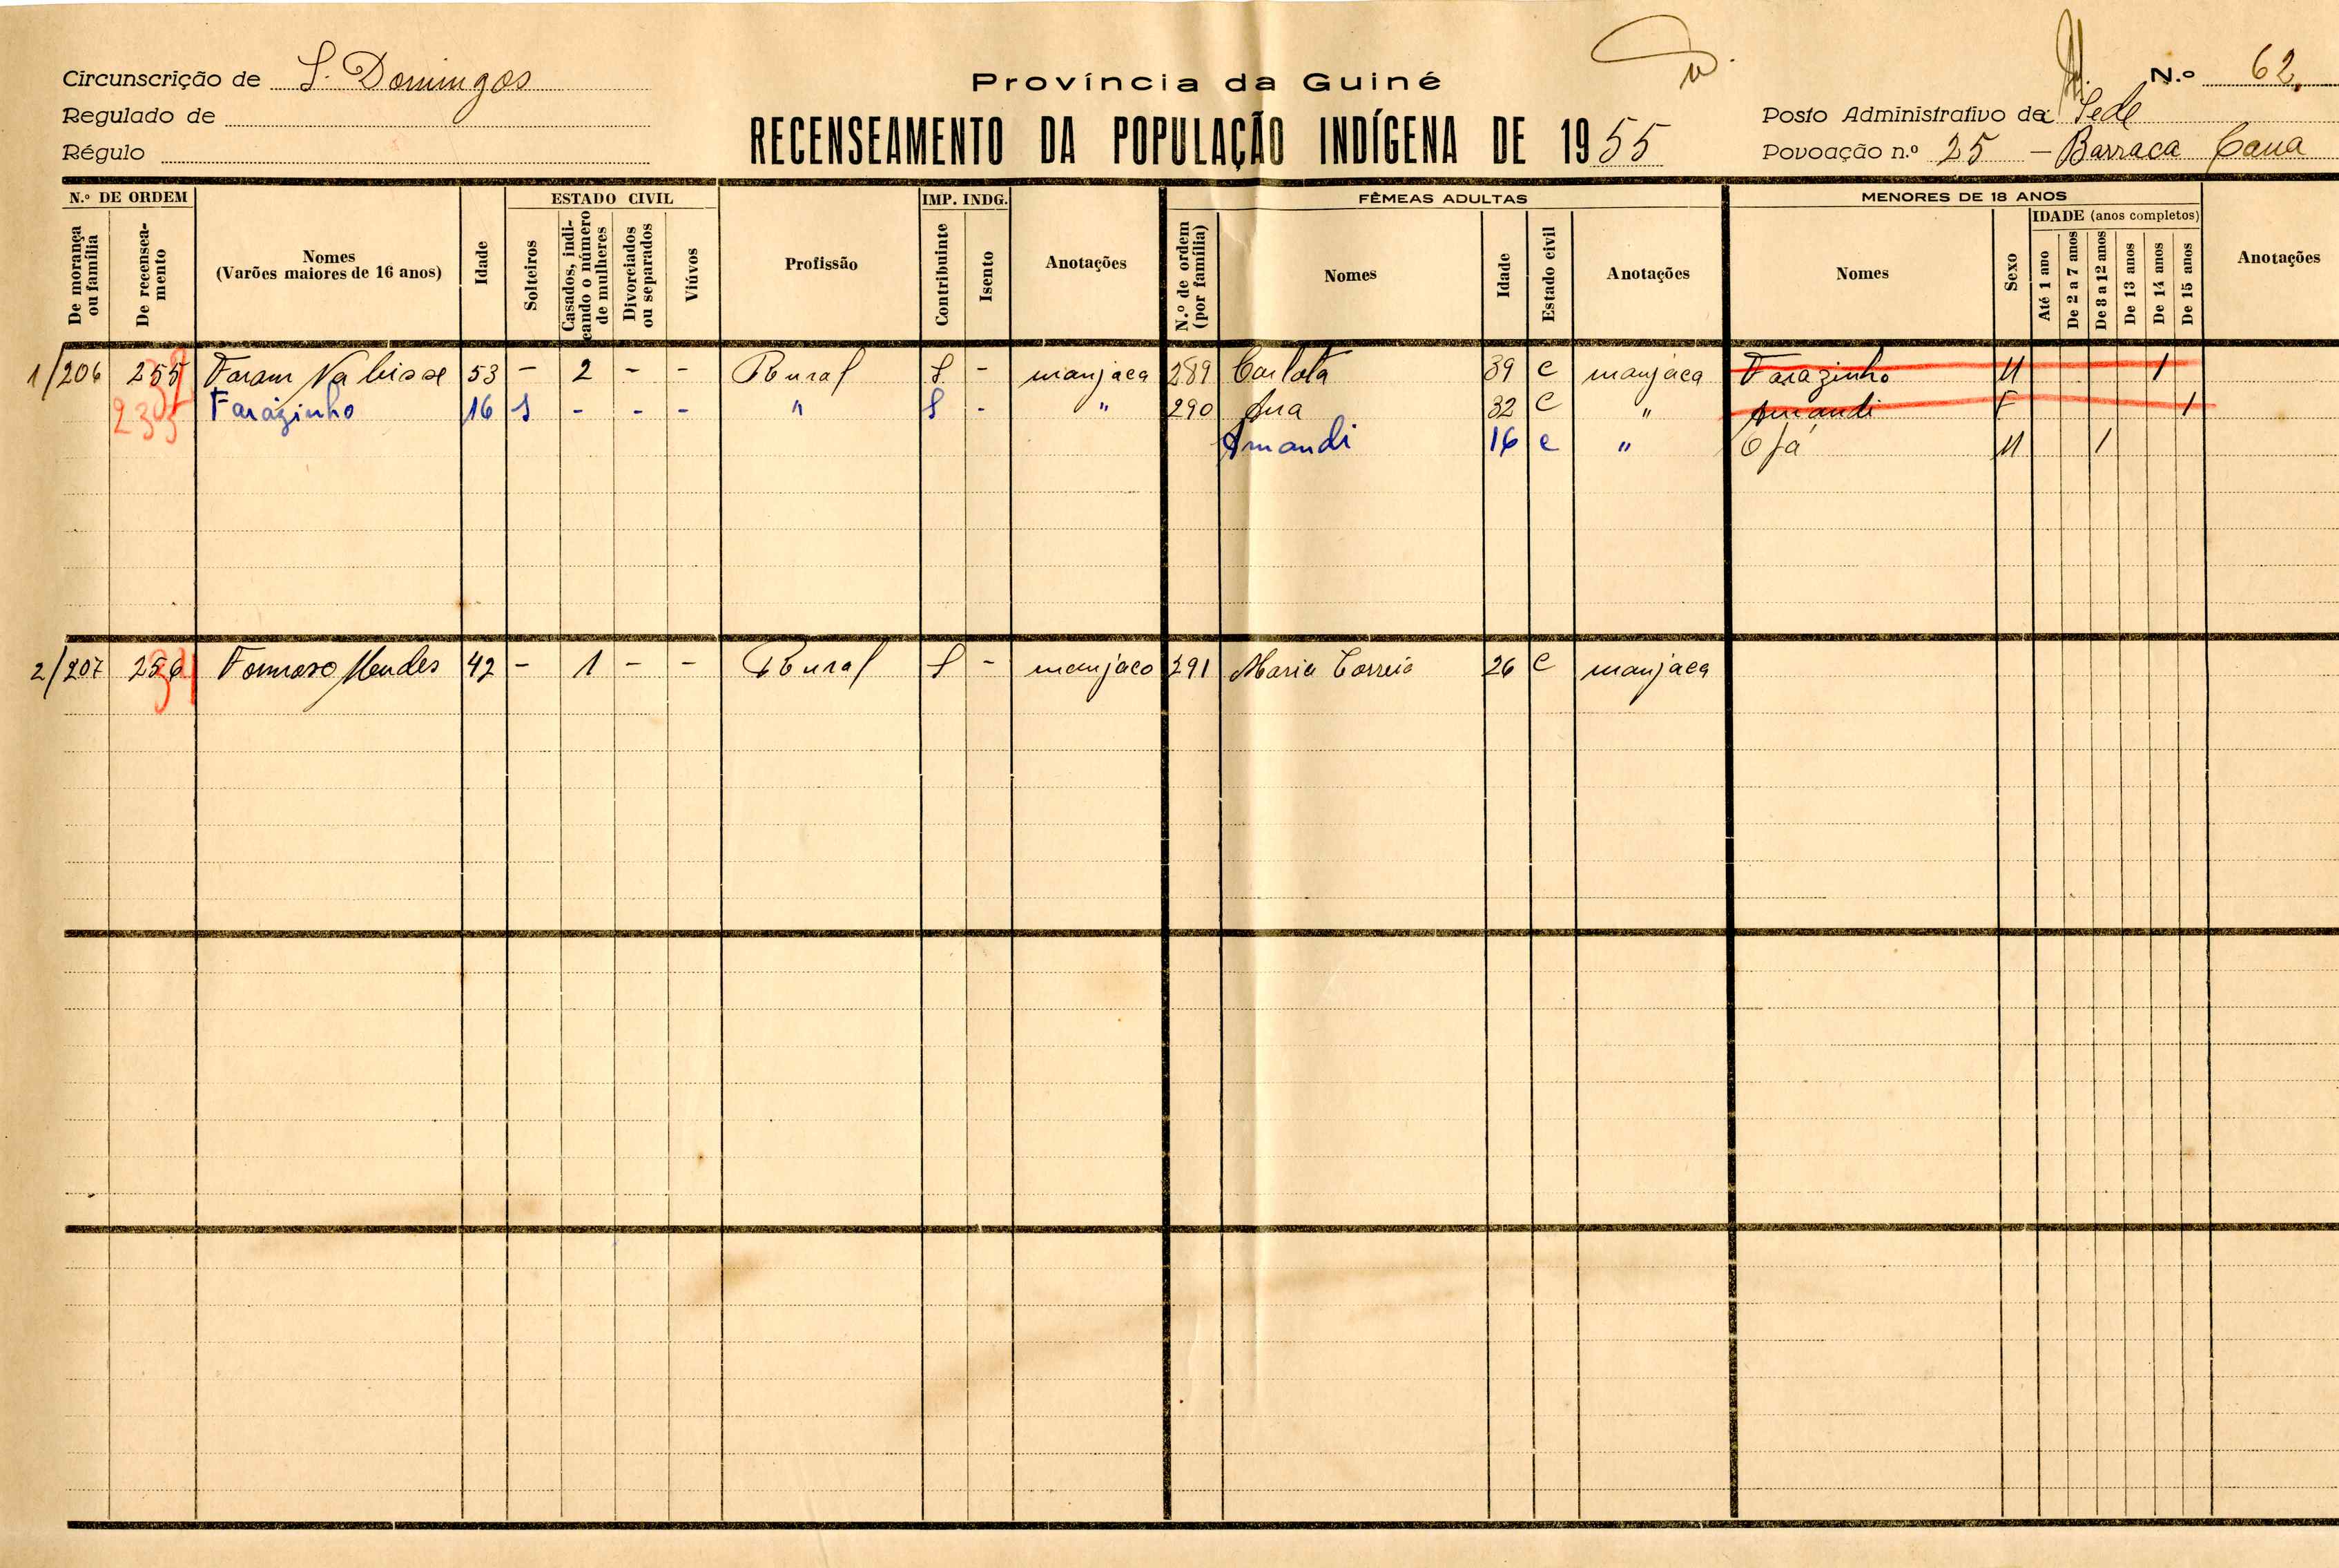 Circunscrição de S. Domingos
Província da Guiné
N.º 62
Regulado de
Posto Administrativo da Sede
Régulo
RECENSEAMENTO DA POPULAÇÃO INDÍGENA DE 1955
Povoação n.º 25 – Barraca Caua
N.º DE ORDEM
ESTADO CIVIL
IMP. INDG.
FÊMEAS ADULTAS
MENORES DE 18 ANOS
De morança ou família
De recenseamento
Nomes (Varões maiores de 16 anos)
Idade
Solteiros
Casados, indicando o número de mulheres
Divorciados ou separados
Viúvos
Profissão
Contribuinte
Isento
Anotações
N.º de ordem (por família)
Nomes
Idade
Estado civil
Anotações
Nomes
Sexo
IDADE (anos completos)
Até 1 ano
De 2 a 7 anos
De 8 a 12 anos
De 13 anos
De 14 anos
De 15 anos
Anotações
1/206 255 Faram Na bisse 53 - 2 - - Rural S - manjaca 289 Carlota 39 C manjaca Farazinho M 1
233 Farazinho 16 S - - - " S - " 290 Ana 32 C " Amandi F 1
Amandi 16 C " Ofá M 1
2/207 256 Formoso Mendes 42 - 1 - - Rural S - manjaco 291 Maria Correia 26 C manjaca